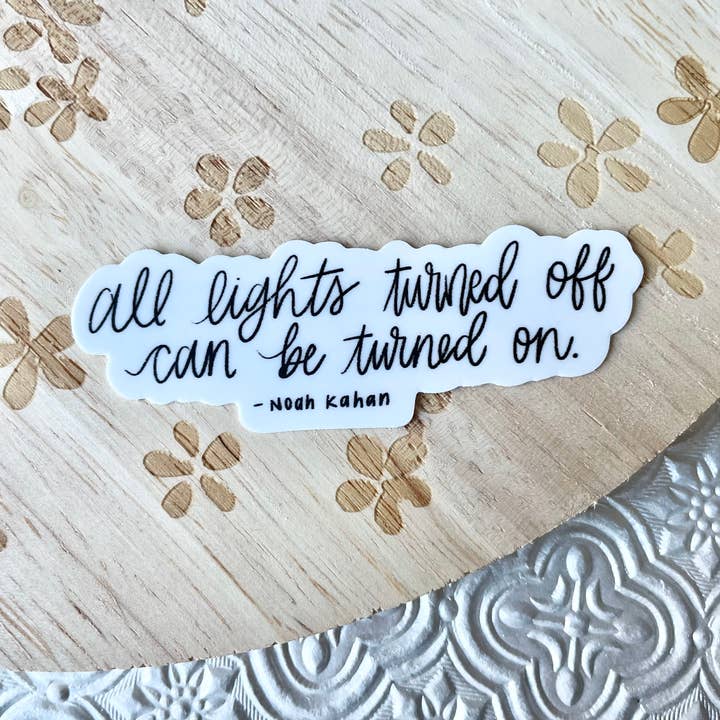 all lights turned off
can be turned on.
- Noah Kahan